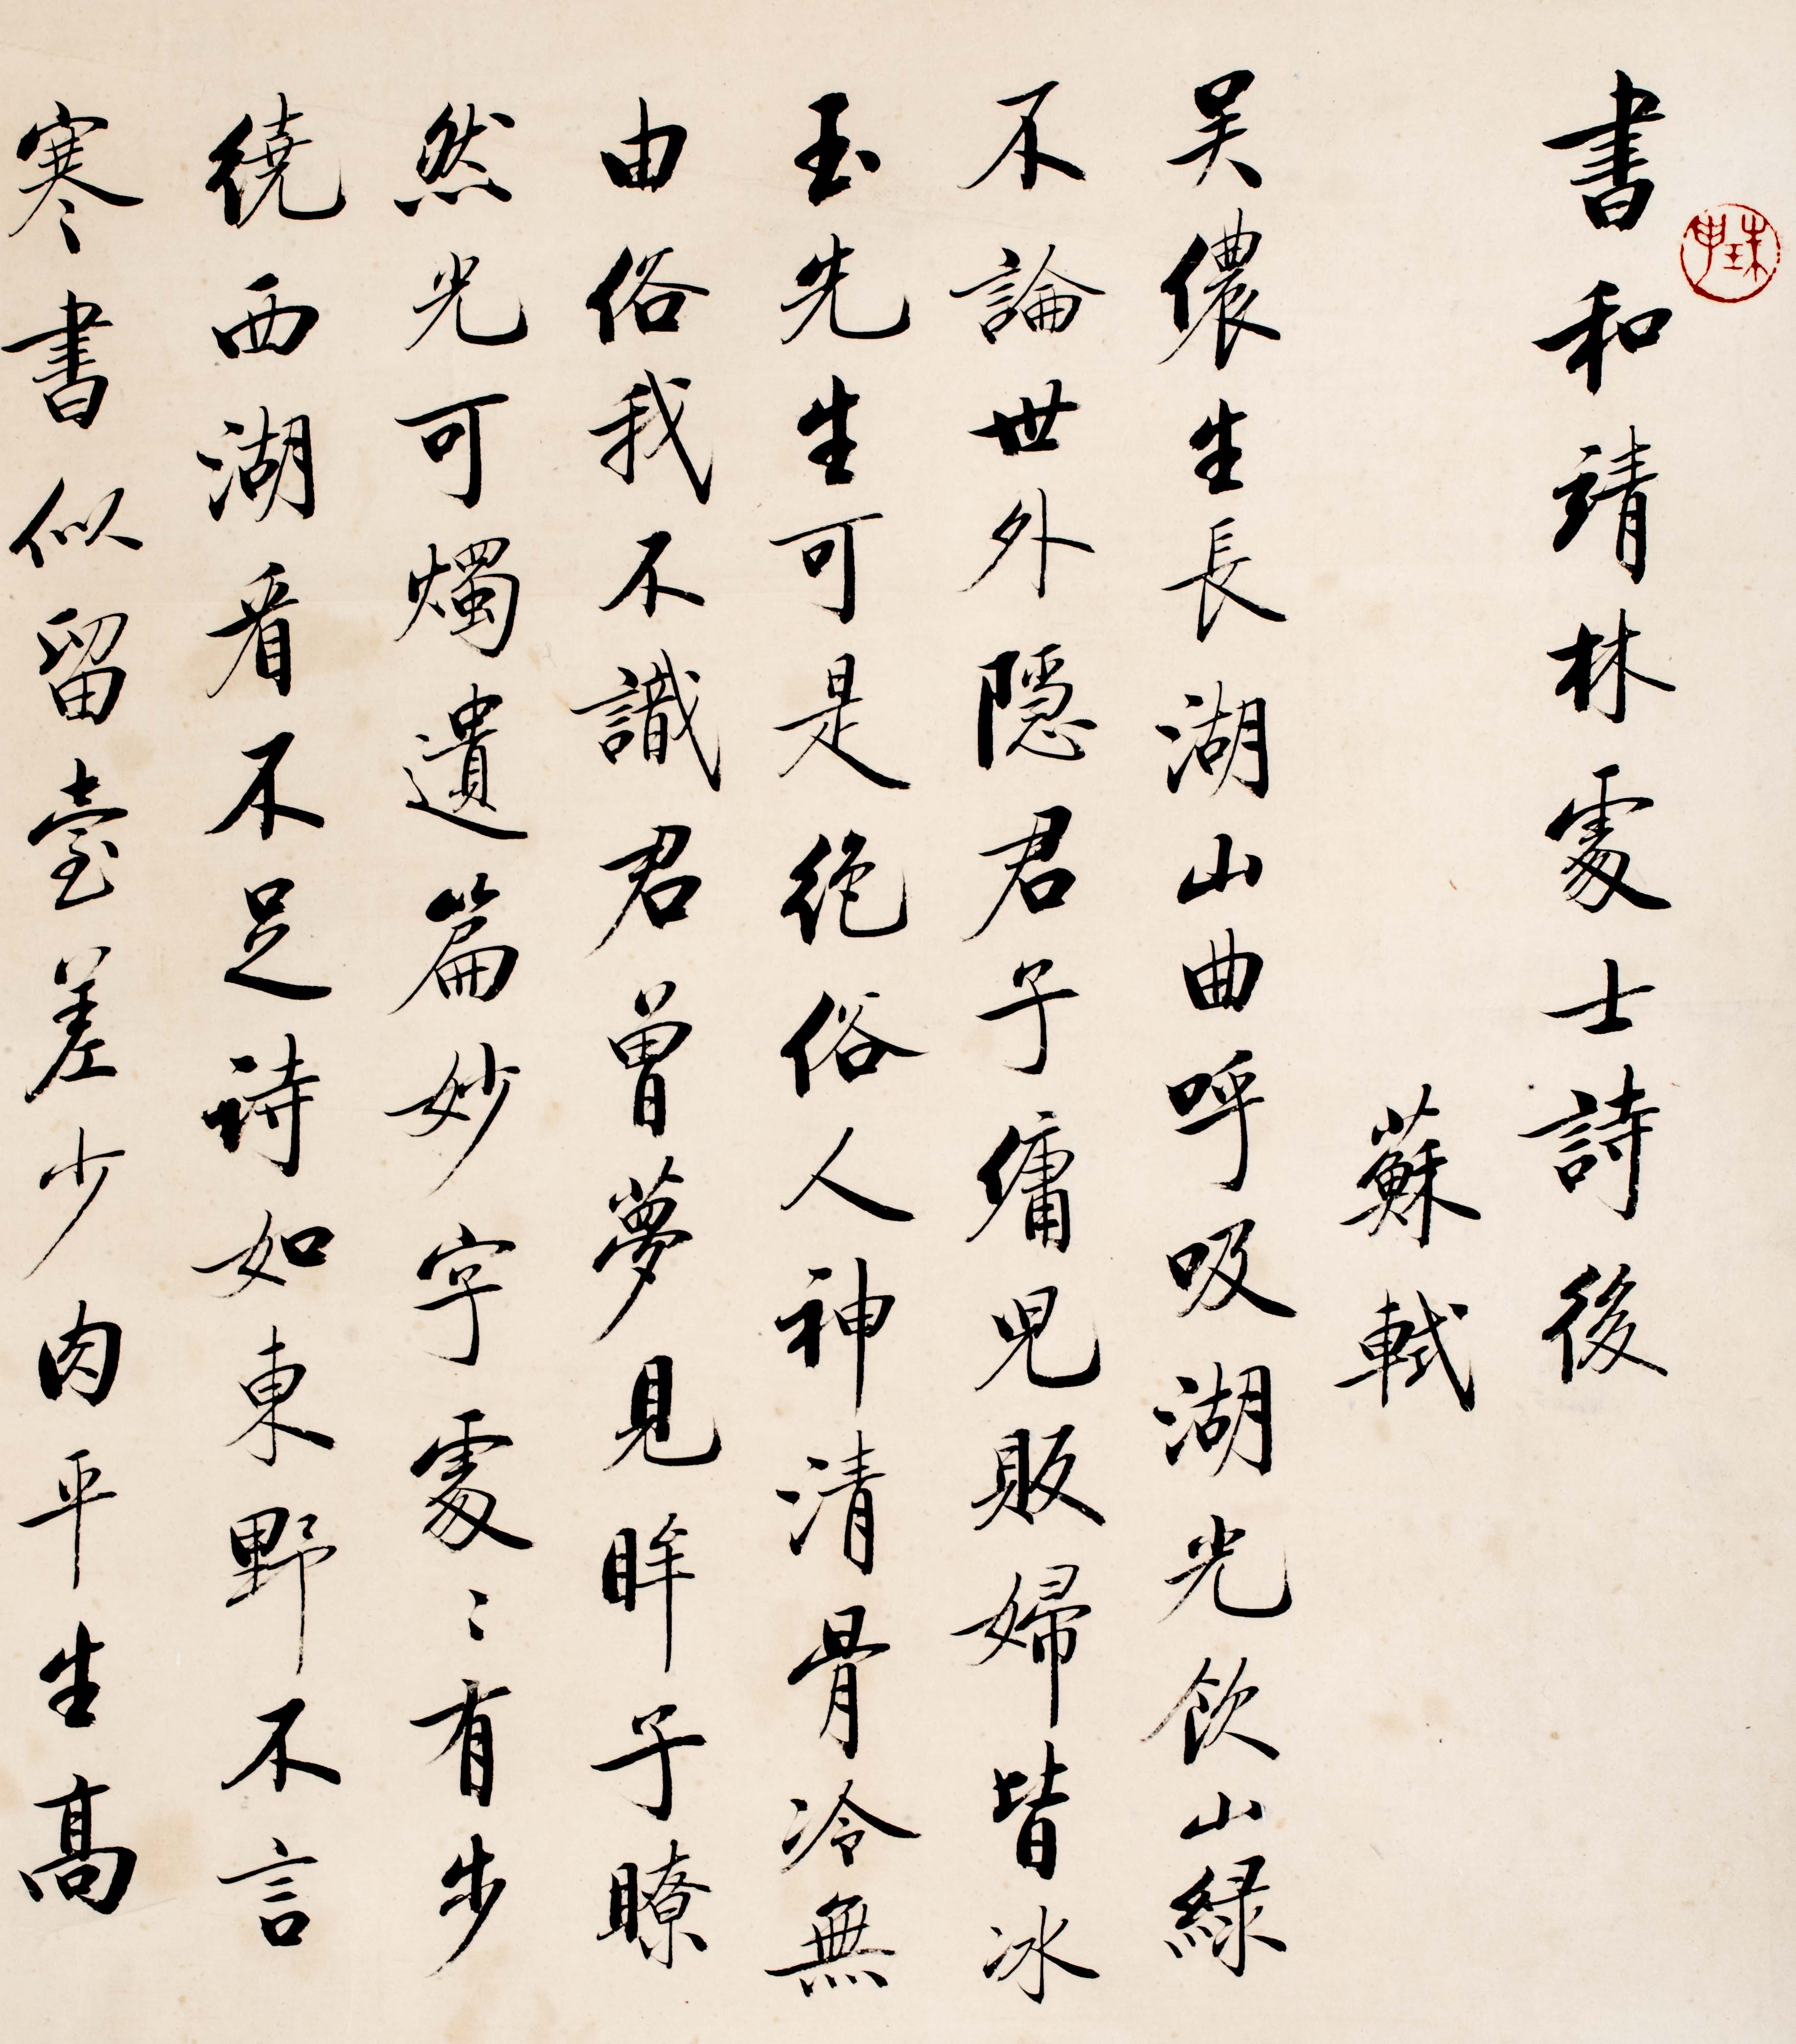 書和靖林處士詩後
蘇軾
吴儂生長湖山曲呼吸湖光飲山緑
不論世外隱君子傭兒販婦皆冰
玉先生可是絶俗人神清骨冷無
由俗我不識君曾夢見眸子瞭
然光可燭遺篇妙字處〻有步
繞西湖看不足詩如東野不言
寒書似留臺差少肉平生高